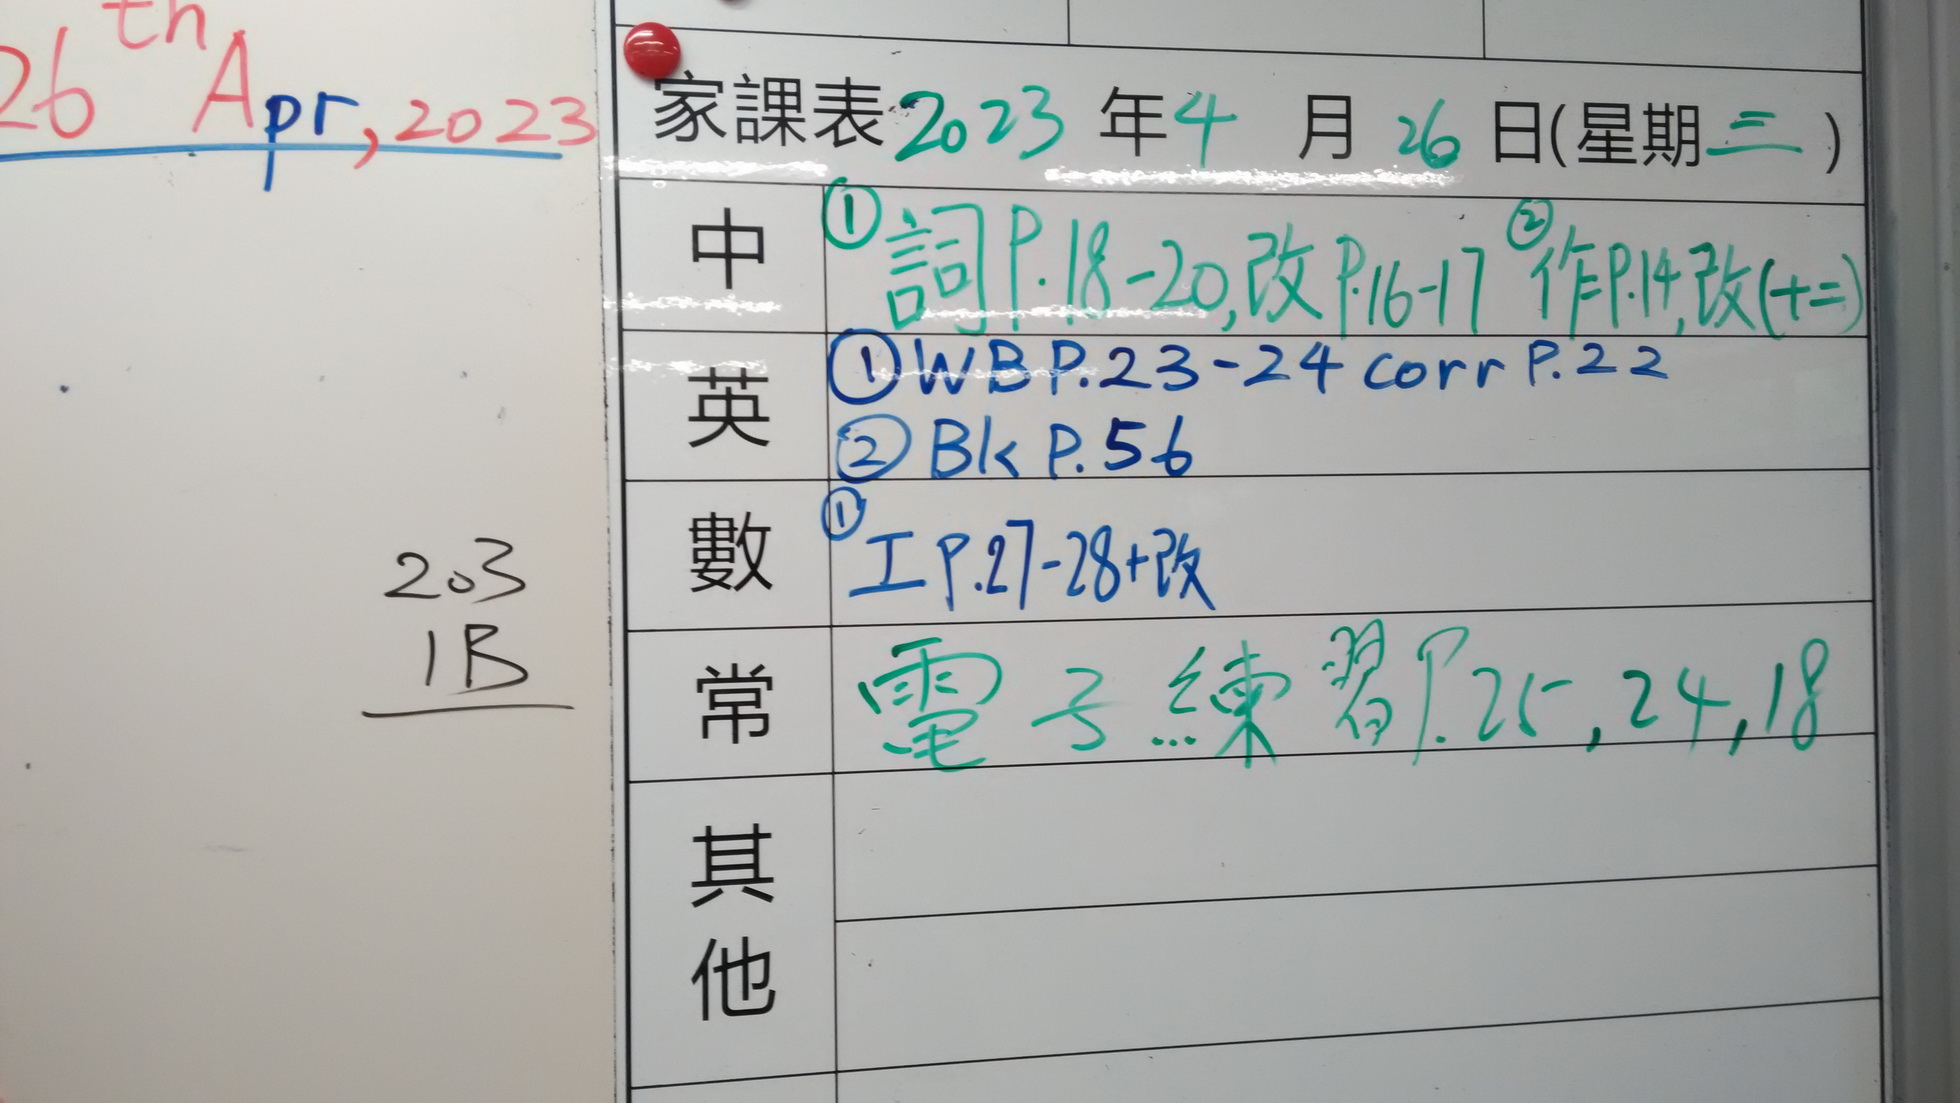 26th Apr, 2023
203
1B
家課表 2023 年 4 月 26 日(星期三)
中 ①詞P.18-20,改P.16-17 ②作P.14,改(十二)
英 ①WB P.23-24 corr P.22
②Bk P.56
數 ①工P.27-28+改
常 電子練習P.25,24,18
其他